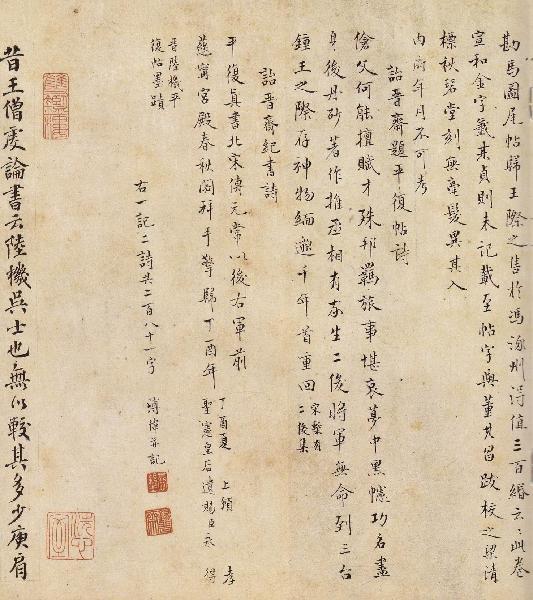 勘馬圖尾帖歸王際之售於馮涿州得值三百緡云云此卷
宣和金字籤其真則未記載至帖字與董其昌跋校之梁清
標秋碧堂刻無毫髮異其入
內府年月不可考
詒晉齋題平復帖詩
傖父何能擅賦才殊邦羈旅事堪哀夢中黑幰功名盡
身後丹砂著作推丞相有家生二俊將軍無命到三台
鍾王之際存神物緬邈千年首重回 宋槧有二俊集
詒晉齋紀書詩
平復真書北宋傳元常以後右軍前
慈寧宮殿春秋閱拜手擎歸丁酉年
丁酉夏 上頒 孝
聖憲皇后遺賜臣永 得
晉陸機平
復帖墨蹟
右一記二詩共二百八十一字 溥偉並記
昔王僧虔論書云陸機吳士也無以較其多少庾肩